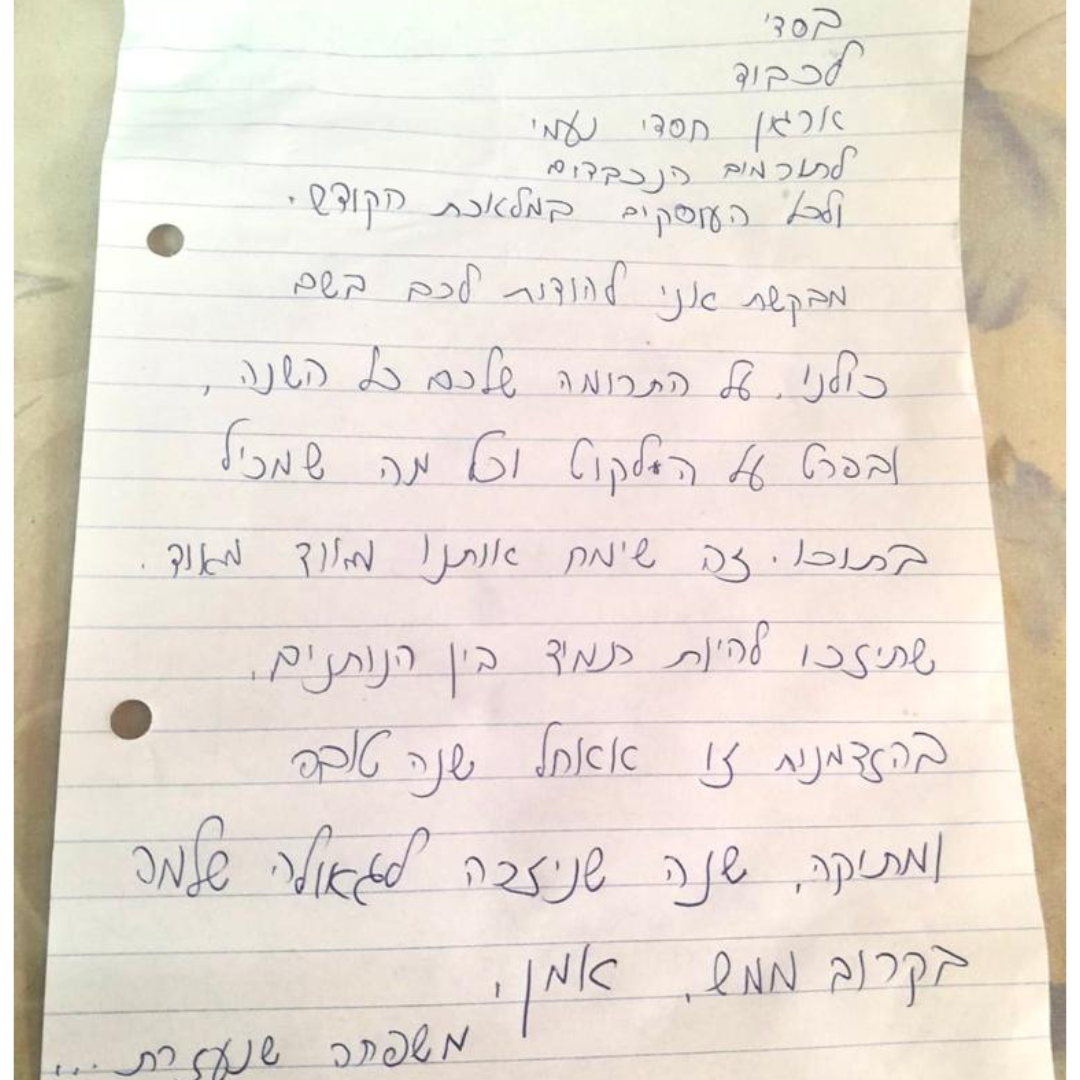 בסד'
לכבוד
ארגון חסדי נעמי
לתורמים הנכבדים
ולכל העוסקים במלאכת הקודש.
מבקשת אני להודות לכם בשם
כולנו. על התרומה שלכם כל השנה,
ובפרט על הילקוט וכל מה שמכיל
בתוכו. זה שימח אותנו מאוד מאוד.
שתיזכו להיות תמיד בין הנותנים.
בהזדמנות זו אאחל שנה טובה
ומתוקה, שנה שניזכה לגאולה שלמה
בקרוב ממש. אמן.
משפחה שנעזרת...